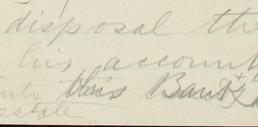 disposal the
his account
into this Bank &
estate